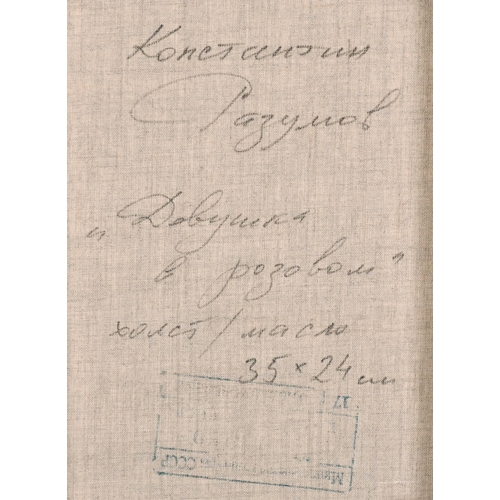 Константин
Разумов
„Девушка
в розовом"
холст / масло
35 × 24 см
17
СССР